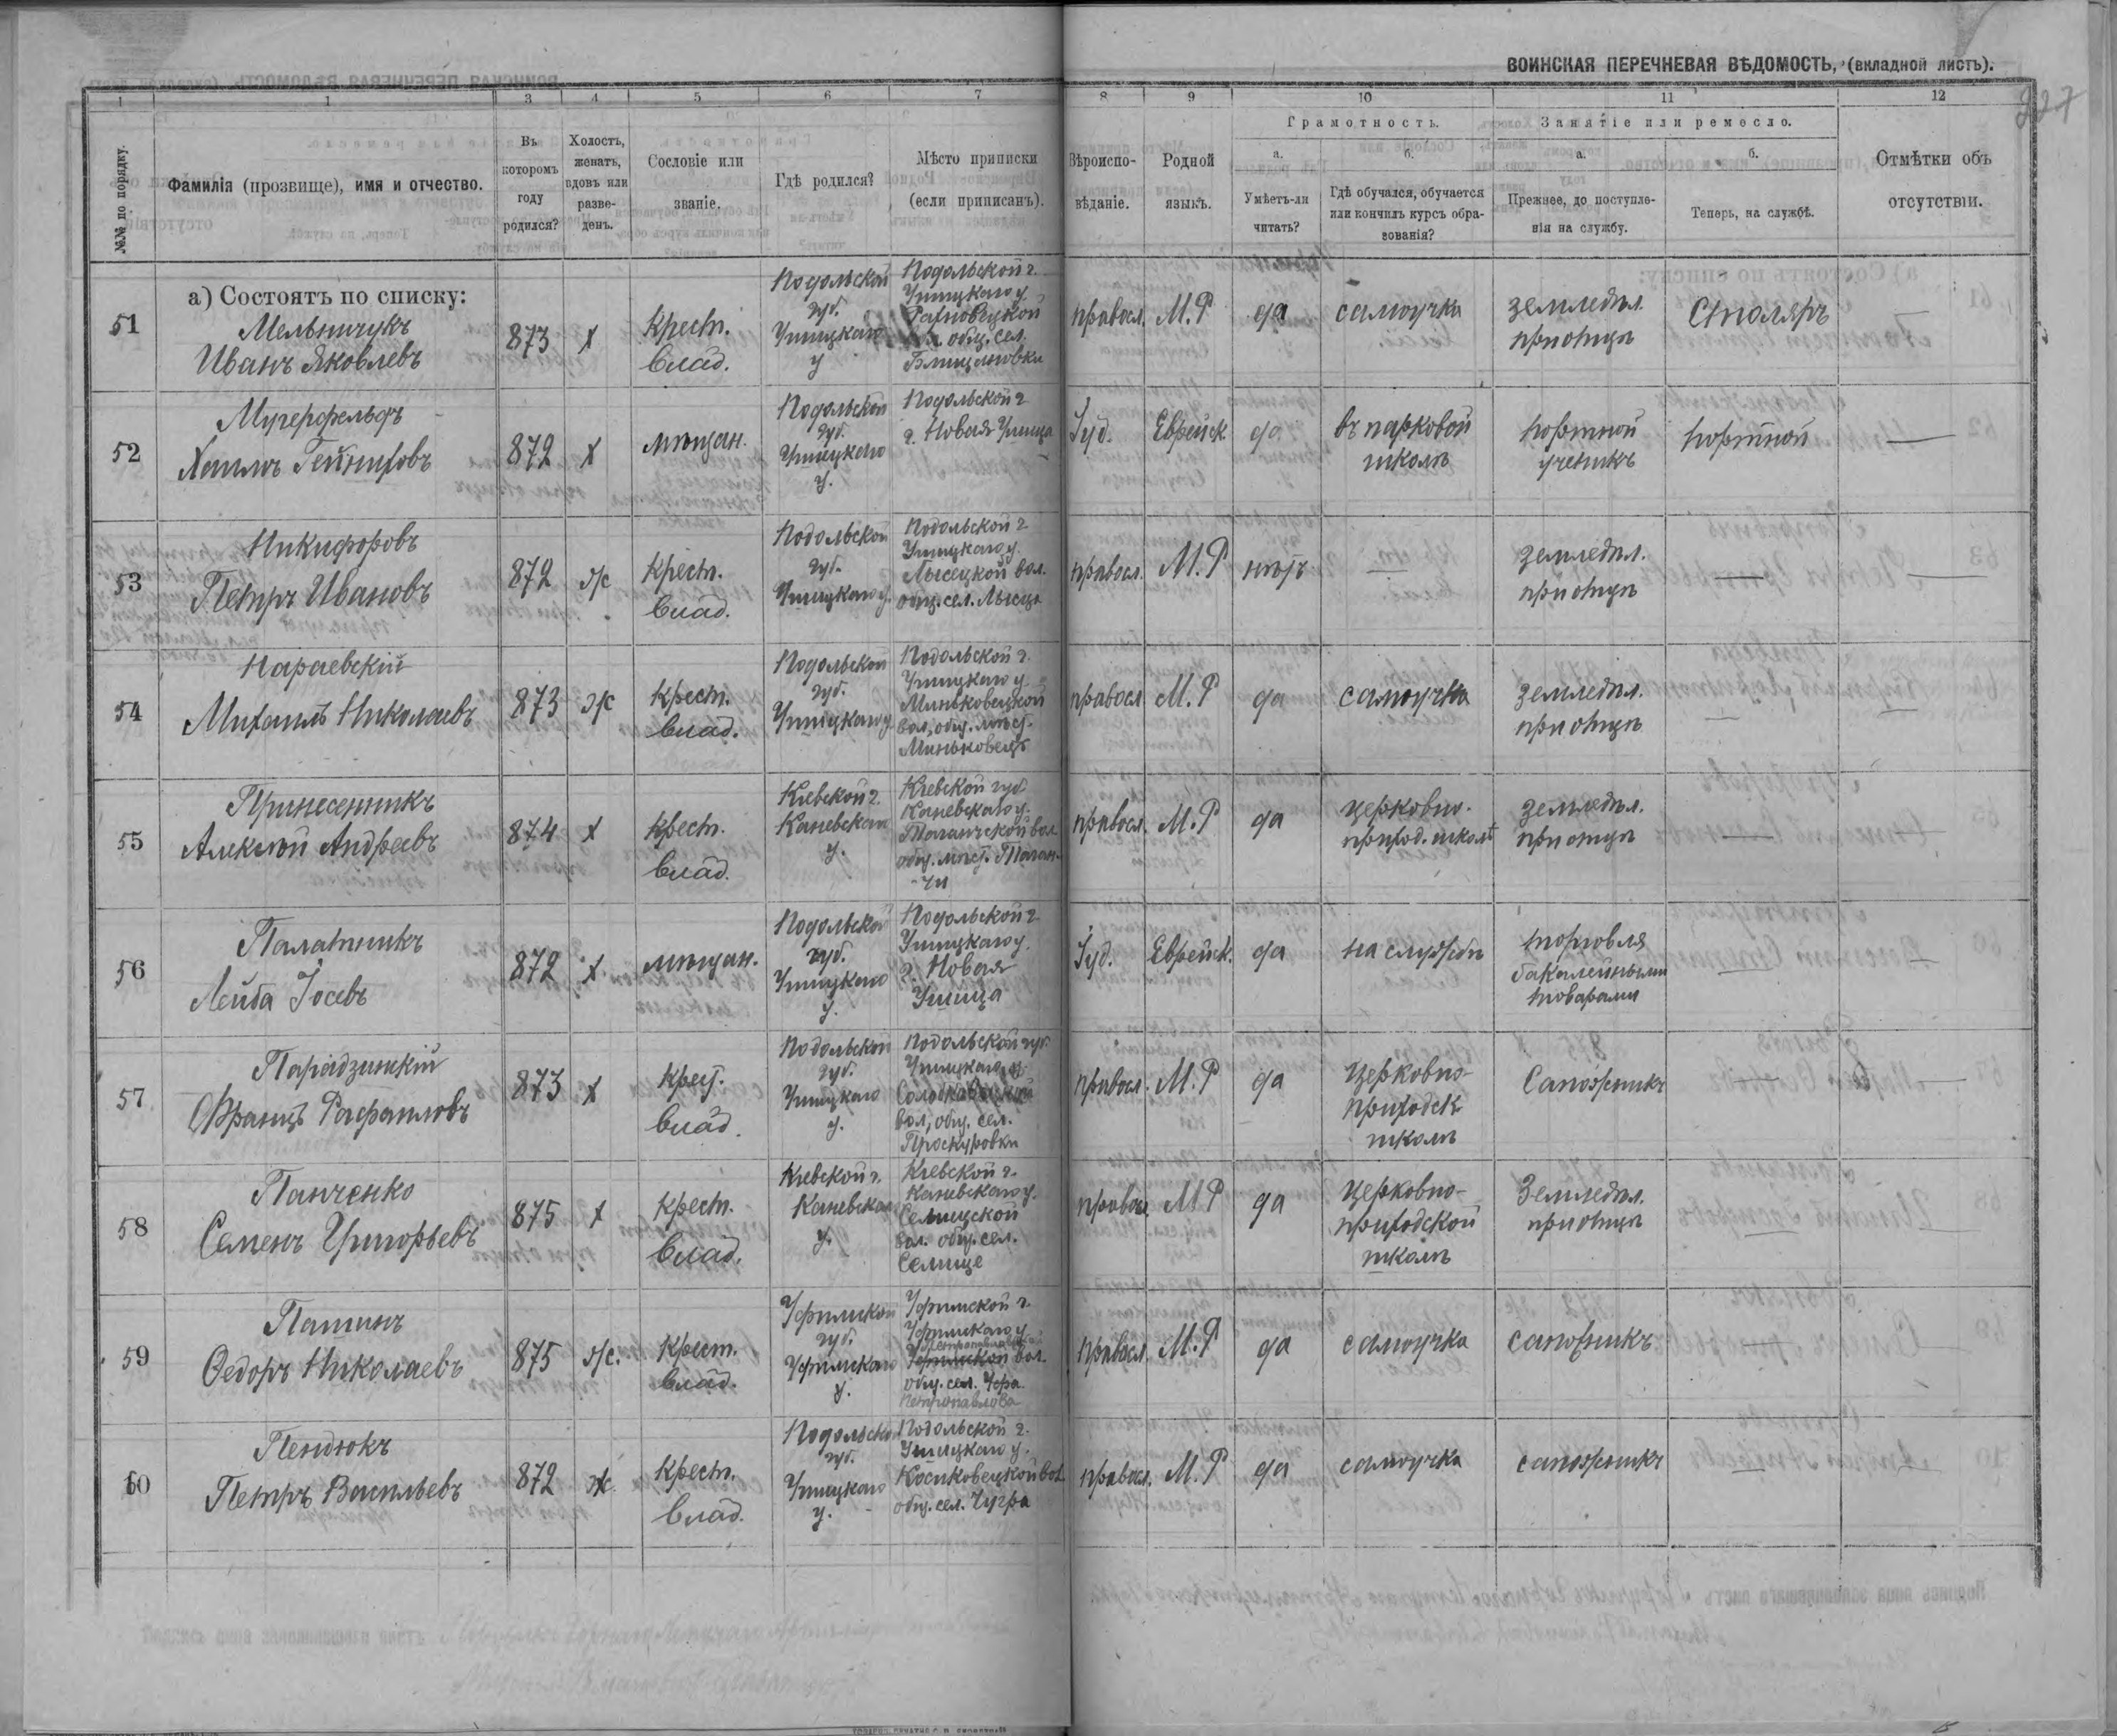 ВОИНСКАЯ ПЕРЕЧНЕВАЯ ВѢДОМОСТЬ, (вкладной листъ).
227
1 1 3 4 5 6 7 8 9 10 11 12
№№ по порядку.
Фамилія (прозвище), имя и отчество.
Въ которомъ году родился?
Холостъ, женатъ, вдовъ или разведенъ.
Сословіе или званіе.
Гдѣ родился?
Мѣсто приписки (если приписанъ).
Вѣроисповѣданіе.
Родной языкъ.
Грамотность.
а. Умѣетъ-ли читать?
б. Гдѣ обучался, обучается или кончилъ курсъ образованія?
Занятіе или ремесло.
а. Прежнее, до поступленія на службу.
б. Теперь, на службѣ.
Отмѣтки объ отсутствіи.
а) Состоятъ по списку:
51
Мельничукъ
Иванъ Яковлевъ
873
Х
Крест.
влад.
Подольской
губ.
Ушицкаго
у
Подольской г.
Ушицкаго у
общ. сел.
правосл.
М.Р
да
самоучка
земледѣл.
при отцѣ
Столяръ
—
52
Хаимъ
872
Х
мѣщан.
Подольской
губ.
Ушицкаго
у.
Подольской г
г. Новая Ушица
Іуд.
Еврейск.
да
въ парковой
школѣ
портной
ученикъ
портной
—
53
Никифоровъ
Петръ Ивановъ
872
ж
Крест.
влад.
Подольской
губ.
Ушицкаго у.
Подольской г
Ушицкаго у.
Лысецкой вол.
общ. сел. Лысца
правосл.
М.Р
нѣтъ
—
земледѣл.
при отцѣ
—
—
54
Нараевскій
Михаилъ Николаевъ
873
ж
Крест.
влад.
Подольской
губ.
Ушицкаго у.
Подольской г.
Ушицкаго у
Миньковецкой
вол, общ. мѣст.
Миньковецъ
правосл
М.Р
да
самоучка
земледѣл.
при отцѣ
—
—
55
Принесенникъ
Алексѣй Андреевъ
874
Х
Крест.
влад.
Кіевской г.
Каневскаго
у.
Кіевской губ
Каневскаго у.
Таганчской вол
общ. мѣст. Таган-
-чи
правосл.
М.Р
да
церковно-
приход. школѣ
земледѣл.
при отцѣ
—
—
56
Палатникъ
Лейба Іосевъ
872
Х
мѣщан.
Подольской
губ.
Ушицкаго
у.
Подольской г
Ушицкаго у.
г. Новая
Ушица
Іуд.
Еврейск.
да
на службѣ
торговля
бакалейными
товарами
—
—
57
Парадзинскій
Францъ Рафаиловъ
873
Х
Крест.
влад.
Подольской
губ.
Ушицкаго
у.
Подольской губ.
Ушицкаго у.
вол, общ. сел.
Проскуровки
правосл.
М.Р
да
Церковно-
приходск
школѣ
Сапожникъ
—
—
58
Панченко
Семенъ Григорьевъ
875
Х
Крест.
влад.
Кіевской г.
Каневскаго
у.
Кіевской г.
Каневскаго у.
Селищской
вол. общ. сел.
Селище
правосл
М Р
да
Церковно-
приходской
школѣ
Земледѣл.
при отцѣ
—
—
59
Пашинъ
Ѳедоръ Николаевъ
875
ж.
Крест.
влад.
Уфимской
губ.
Уфимскаго
у.
Уфимской г.
Уфимскаго у
вол.
общ. сел.
Петропавлова
правосл.
М.Р
да
самоучка
сапожникъ
—
—
60
Пендюкъ
Петръ Васильевъ
872
ж
Крест.
влад.
Подольской
губ.
Ушицкаго
у.
Подольской г.
Ушицкаго у.
Косиковецкой вол
общ. сел.
правосл.
М.Р
да
самоучка
сапожникъ
—
—